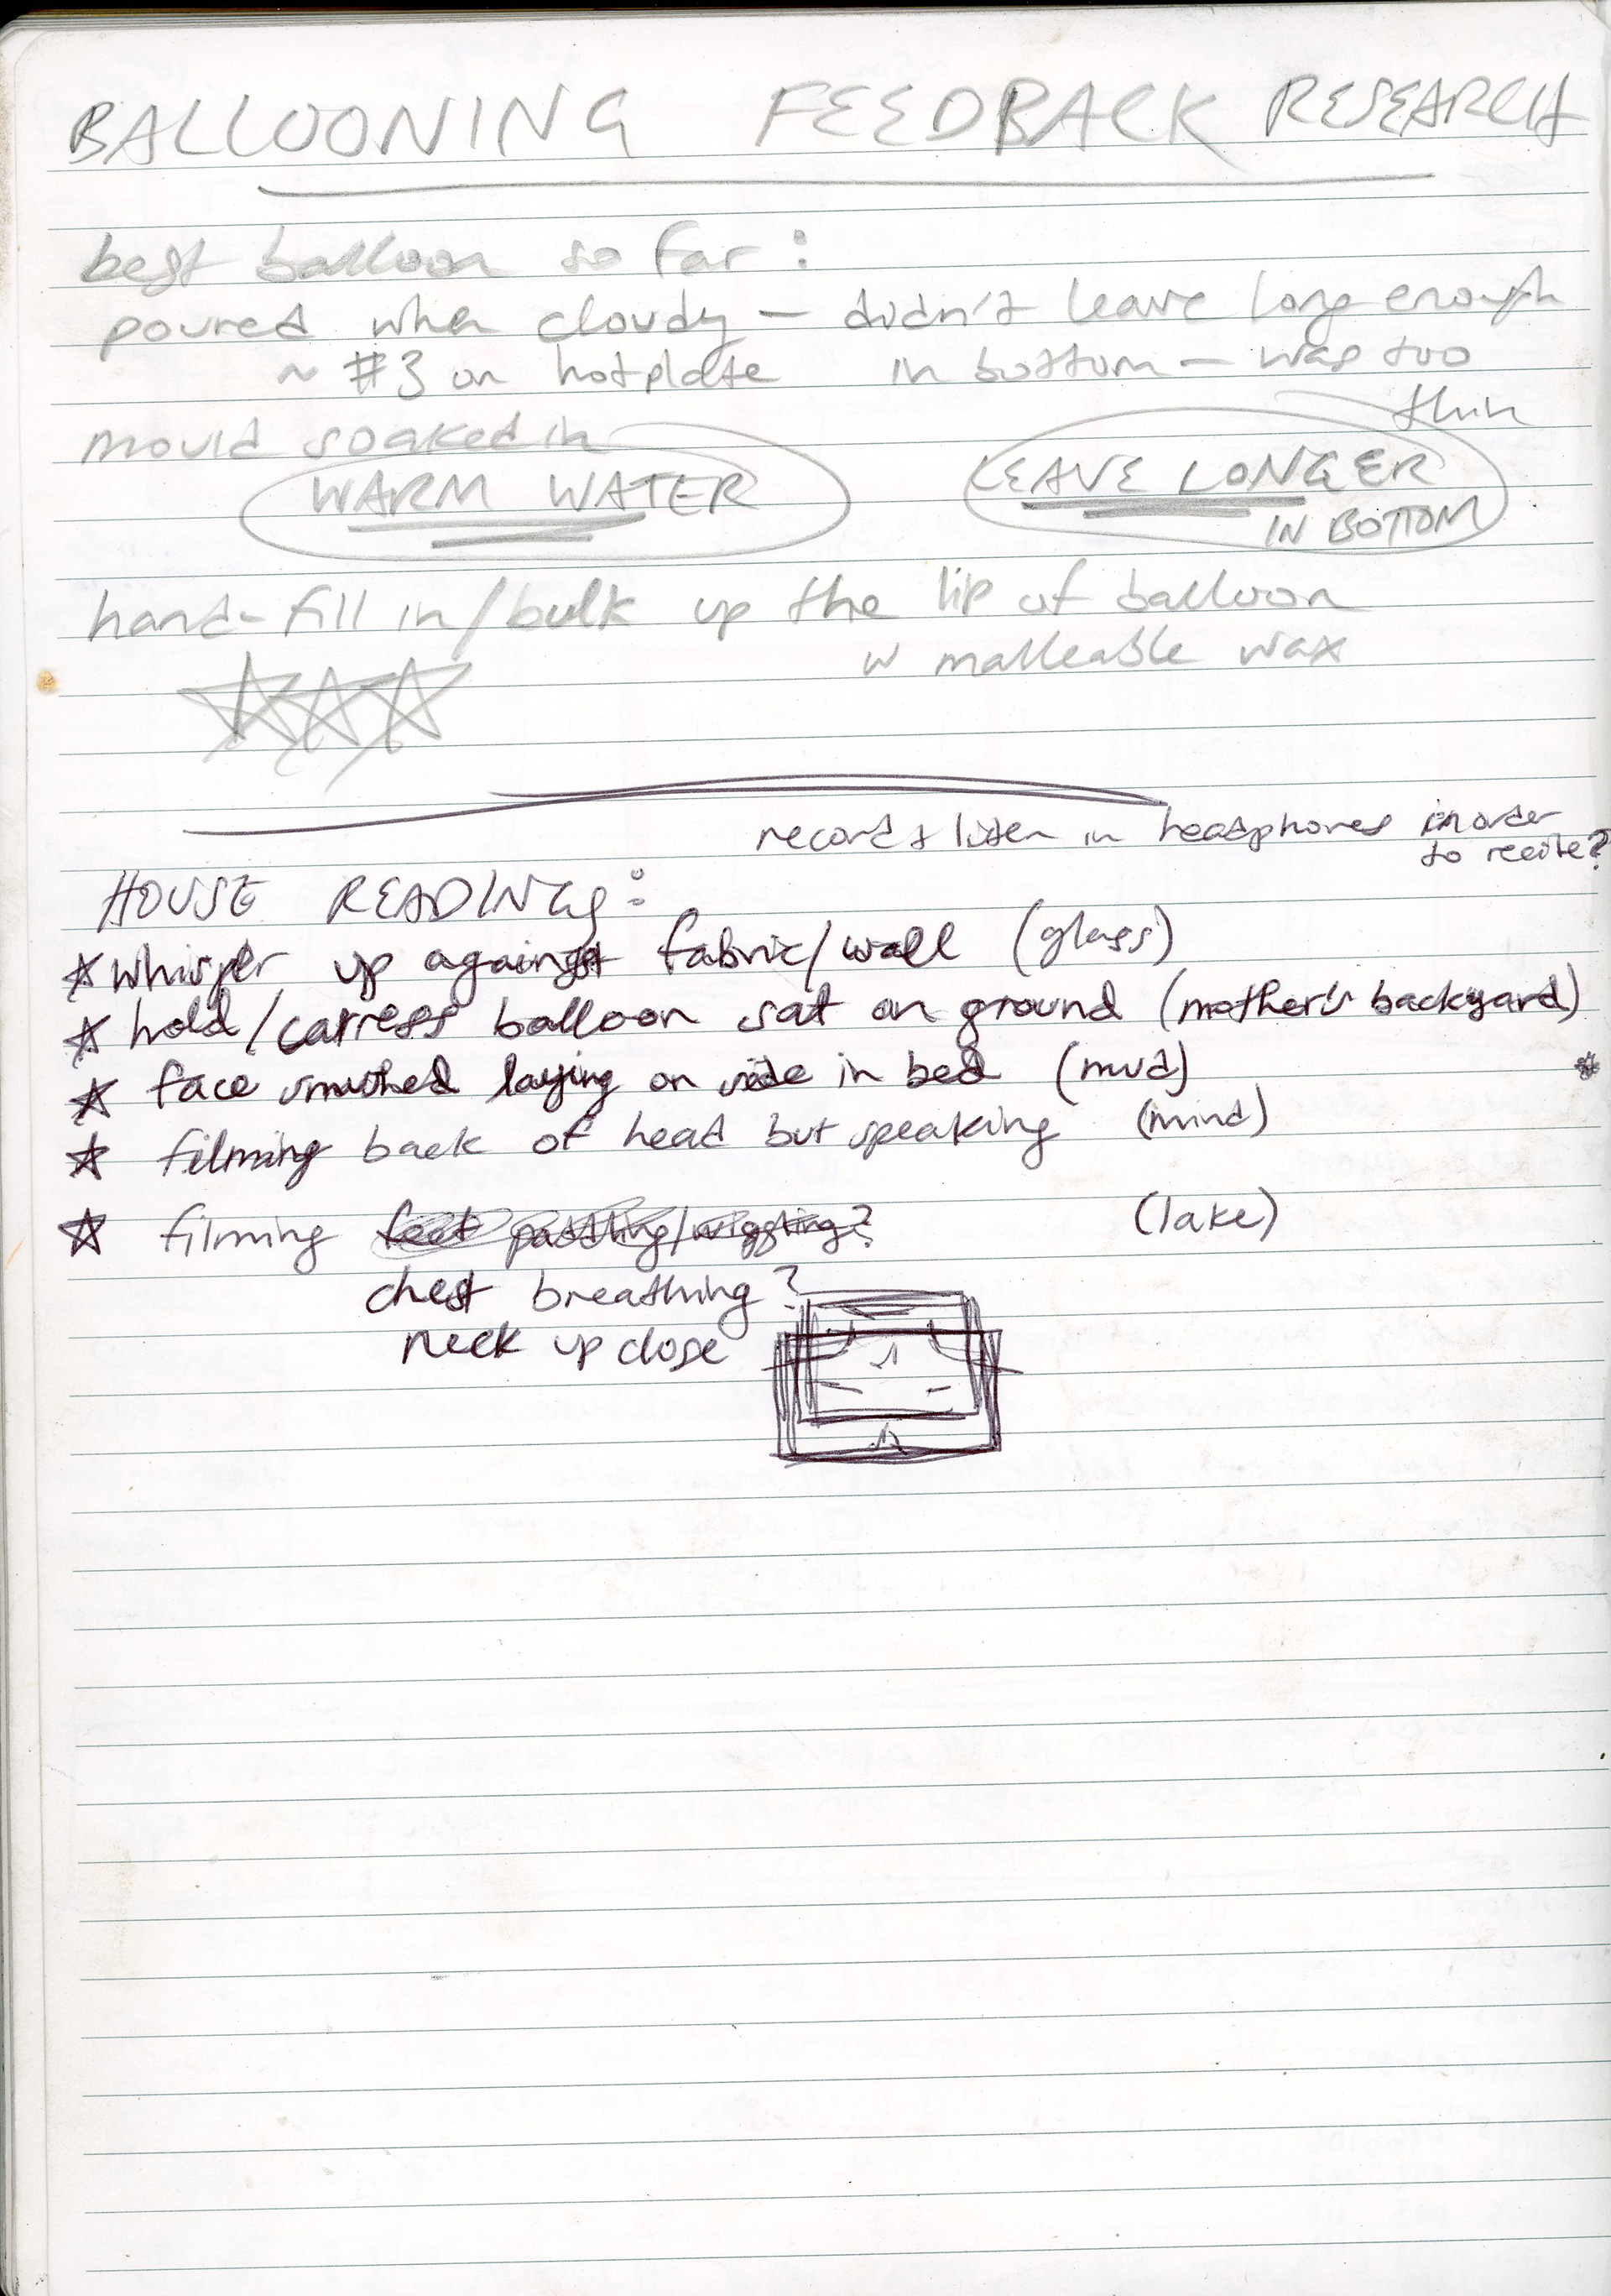 BALLOONING FEEDBACK RESEARCH
best balloon so far:
poured when cloudy — didn't leave long enough
~ #3 on hotplate in bottom — was too
thin
mould soaked in
WARM WATER
LEAVE LONGER
IN BOTTOM
hand-fill in/bulk up the lip of balloon
w malleable wax
record + listen in headphones in order
to recite?
HOUSE READINGS:
whisper up against fabric/wall (glass)
hold/carress balloon sat on ground (mother's backyard)
face smushed laying on side in bed (mud)
filming back of head but speaking (mind)
filming feet paddling/wiggling? (lake)
chest breathing?
neck up close